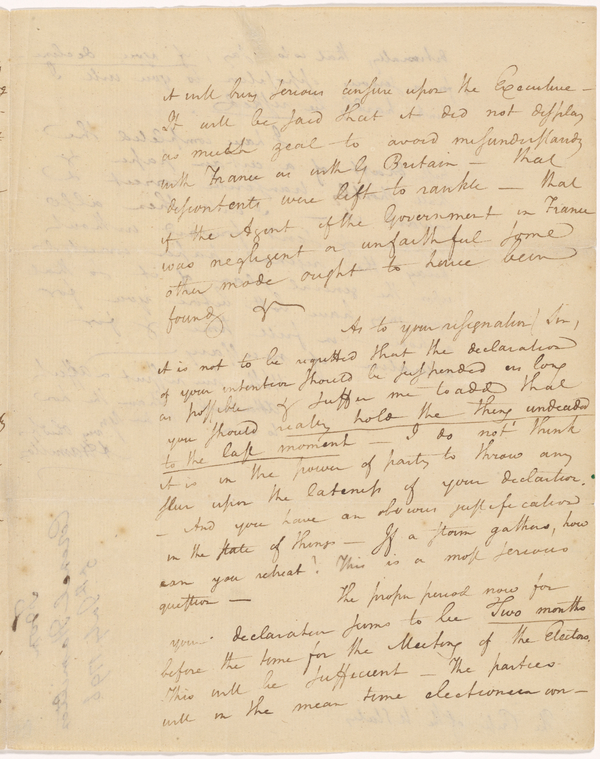 it will bring serious censure upon the Executive –
It will be said that it did not display
as much zeal to avoid misunderstandg
with France as with G Britain – that
discontents were left to rankle – that
if the Agent of the Government in France
was negligent or unfaithful some
other mode ought to have been
found &
As to your resignation, Sir,
it is not to be regretted that the declaration
of your intention should be suspended as long
as possible & suffer me to add that
you should really hold the thing undecided
to the last moment – I do not think
it is in the power of party to throw any
slur upon the lateness of your declaration.
– And you have an obvious justification
in the state of things – If a storm gathers, how
can you retreat? This is a most serious
question –
The proper period now for
your declaration seems to be Two months
before the time for the Meeting of the Electors.
This will be sufficient – The parties
will in the mean time electioneer con–